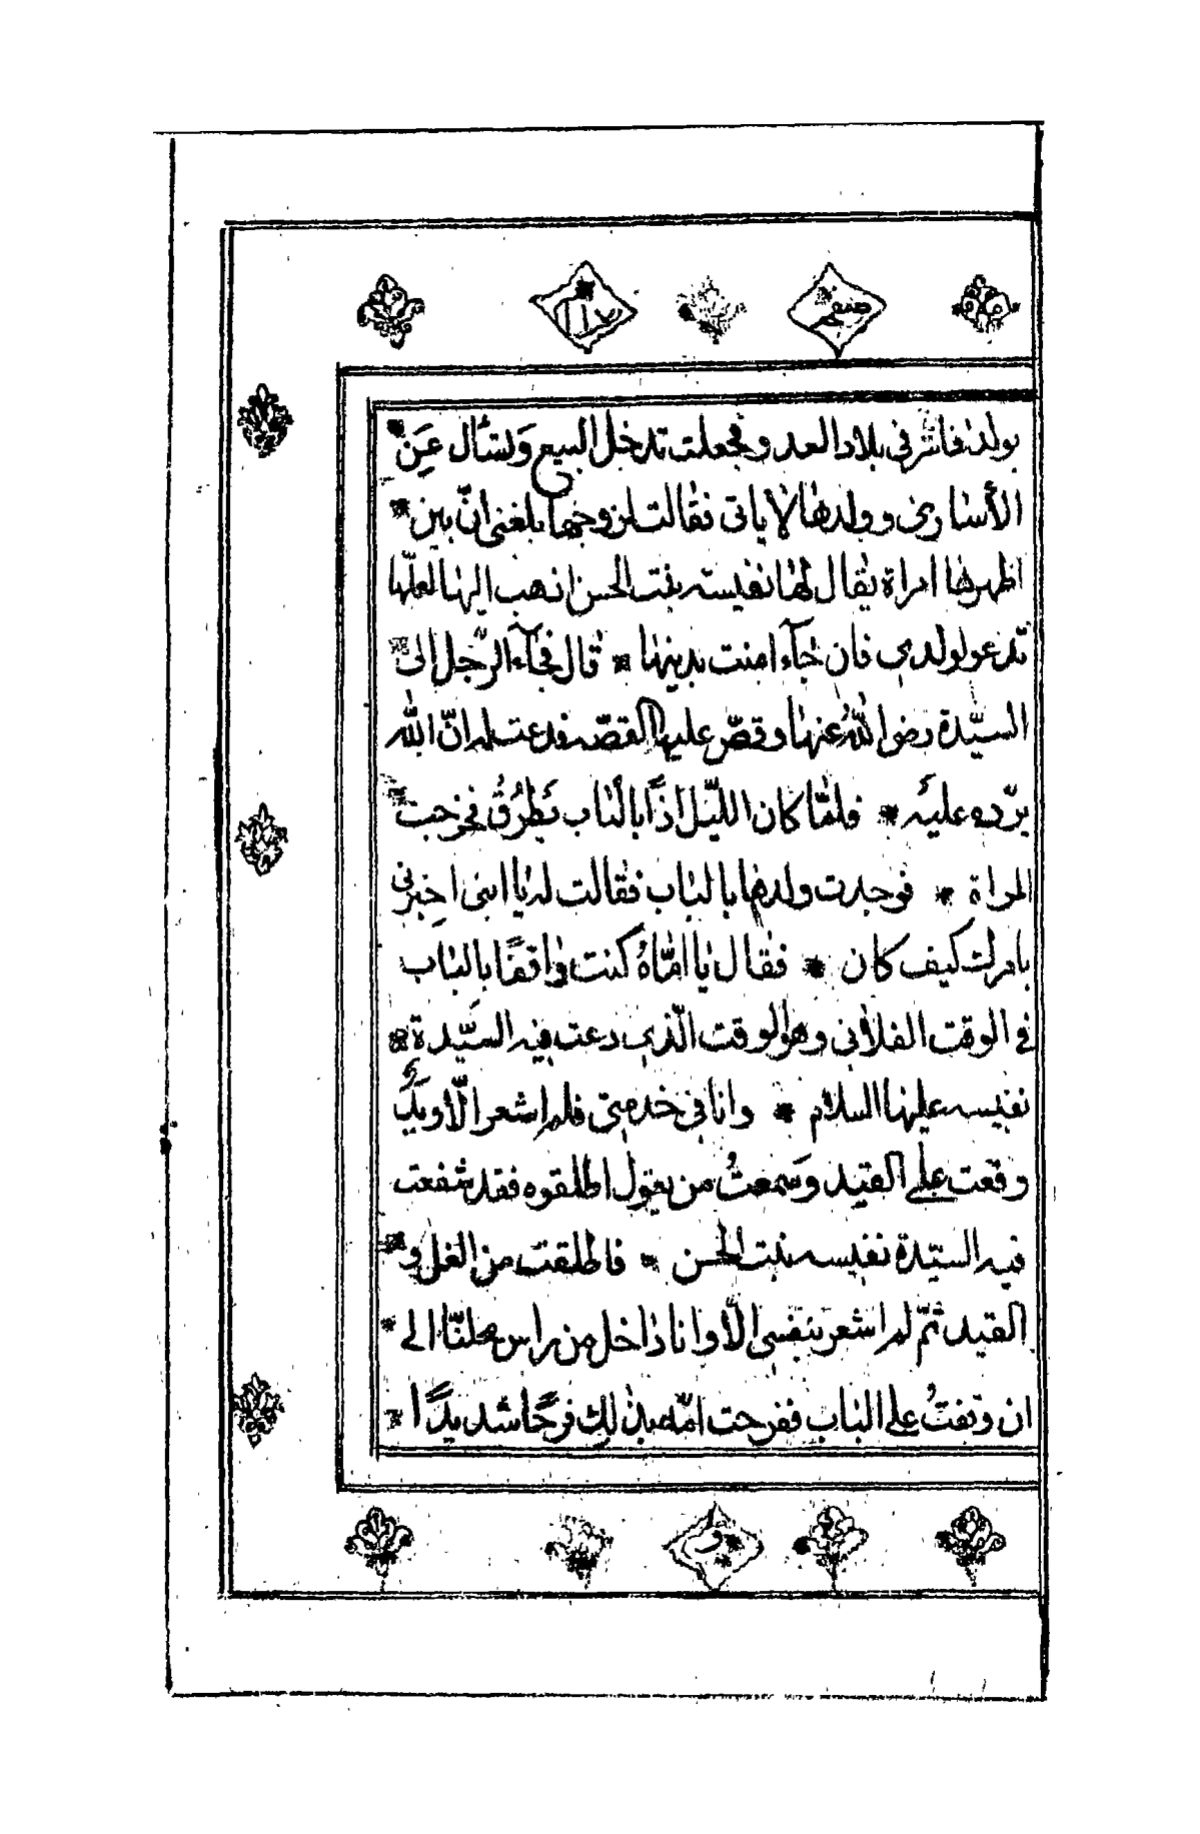 صفحه
١١٧
بولد فاسر في بلاد العدو فجعلت تدخل البيع وتسأل عن
الأسارى وولدها لا ياتى فقالت لزوجها بلغنى انّ بين
اظهرنا امراة يقال لها نفيسه بنت الحسن اذهب اليها لعلّها
تدعو لولدى فان جآء امنت بدينها قال فجآء الرّجل الى
السيّدة رضى اللهُ عنها وقصّ عليها القصّه فدعت له انّ الله
يردّه عليه فلمّا كان اللّيل اذًا بالباب يَطْرُقُ فخرجت
المراة فوجدت ولدها بالباب فقالت له يا ابنى اخبِرنى
بامرك كيف كان فقال يا امّاهُ كنت واقفًا بالباب
فى الوقت الفلانى وهو الوقت الّذى دعت فيه السيّدة
نفيسه عليها السلام وانا فى خدمتى فلم اشعر الّا ويَدٌ
وقعت على القيد وسَمعتُ من يقول اطلقوه فقد شفعت
فيه السيّدة نفيسه بنت الحسن فاطلقت من الغل و
القيد ثمّ لم اشعر بنفسى الّا وانا داخل من راس محلتنا الى
ان وقفتُ على الباب ففرحت امّه بذلك فرحًا شديدًا
و